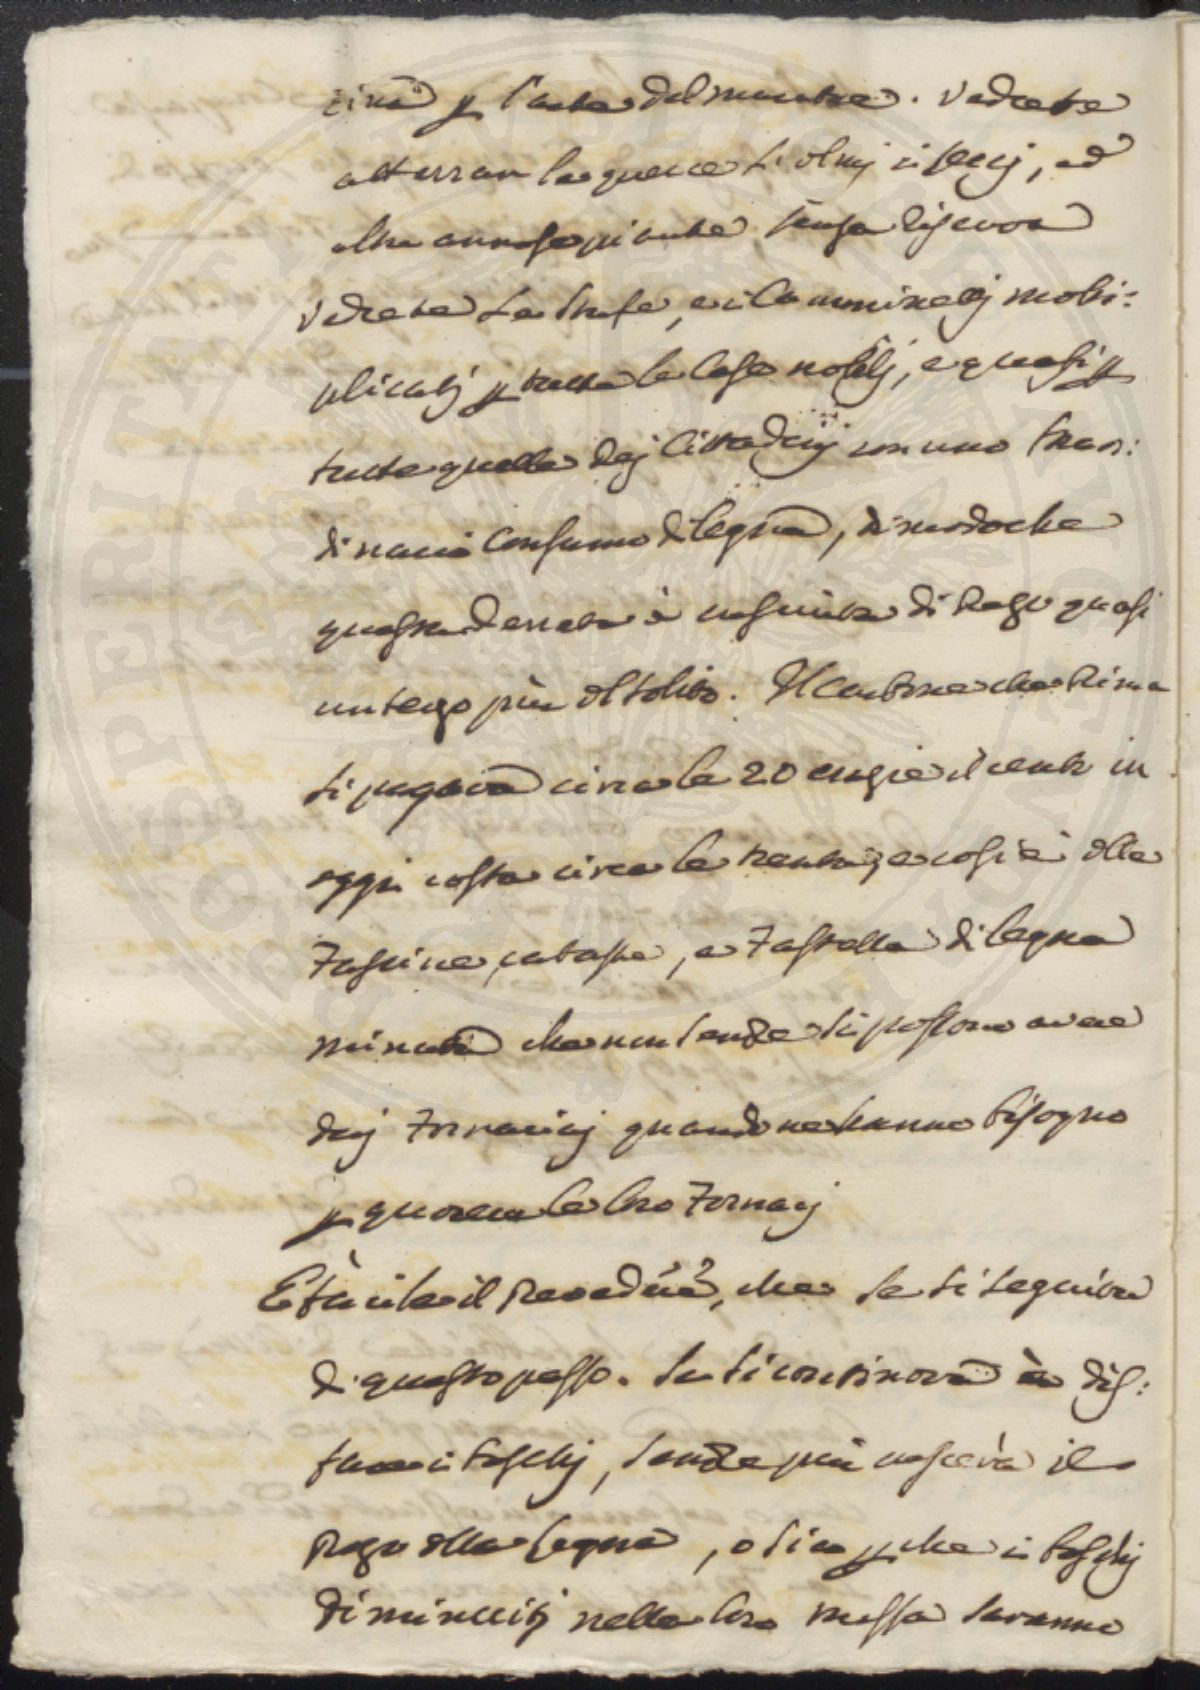 cina p l'arte del muratore. Vedrete
atterrar le querce li olmi i lecci, ed
altre annose piante senza riserva
Vedrete le stufe, e i Camminetti molti:
plicati p tutte le Case nobili, e quasi p
tutte quelle dei Cittadini con uno straor:
dinario Consumo di legna, di modo che
questa derrata è cresciuta di Prezzo quasi
un terzo più del solito. Il Carbone che prima
si pagava circa le 20 crazie il cento in
oggi costa circa le trenta, e così è delle
Fascine, cataste, e Fastella di legna
minuta che a stento si possono avere
dai Fornaciai quando ne hanno bisogno
p quocere le loro Fornaci
E facile il Prevedere, che se si seguita
di questo passo. Se si continova a dis:
fare i Boschi, sempre più crescerà il
Prezzo della Legna, o sia p che i boschi
diminuiti nella loro massa saranno